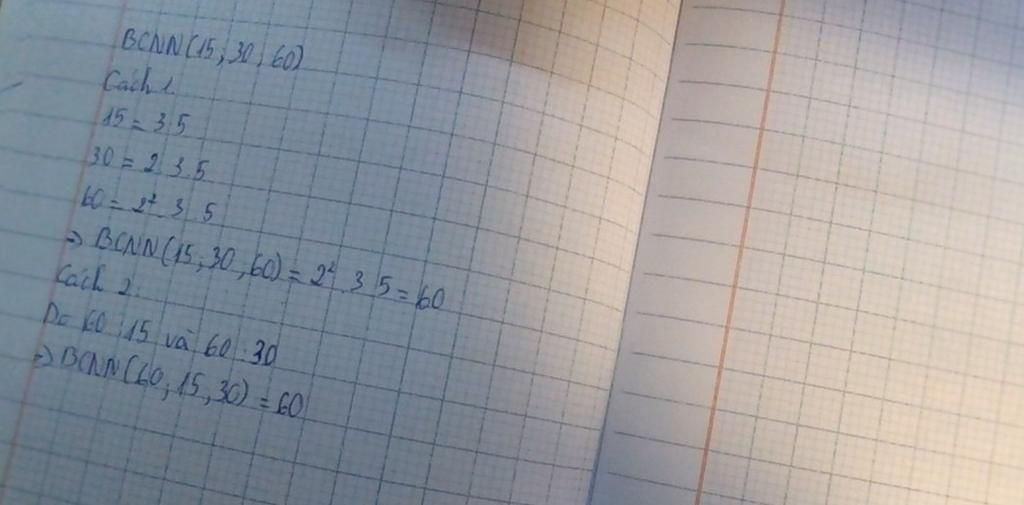 BCNN(15, 30, 60)
Cách 1.
15 = 3.5
30 = 2.3.5
60 = 2².3.5
⇒ BCNN(15, 30, 60) = 2².3.5 = 60
Cách 2.
Do 60 ⋮ 15 và 60 ⋮ 30
⇒ BCNN(60, 15, 30) = 60